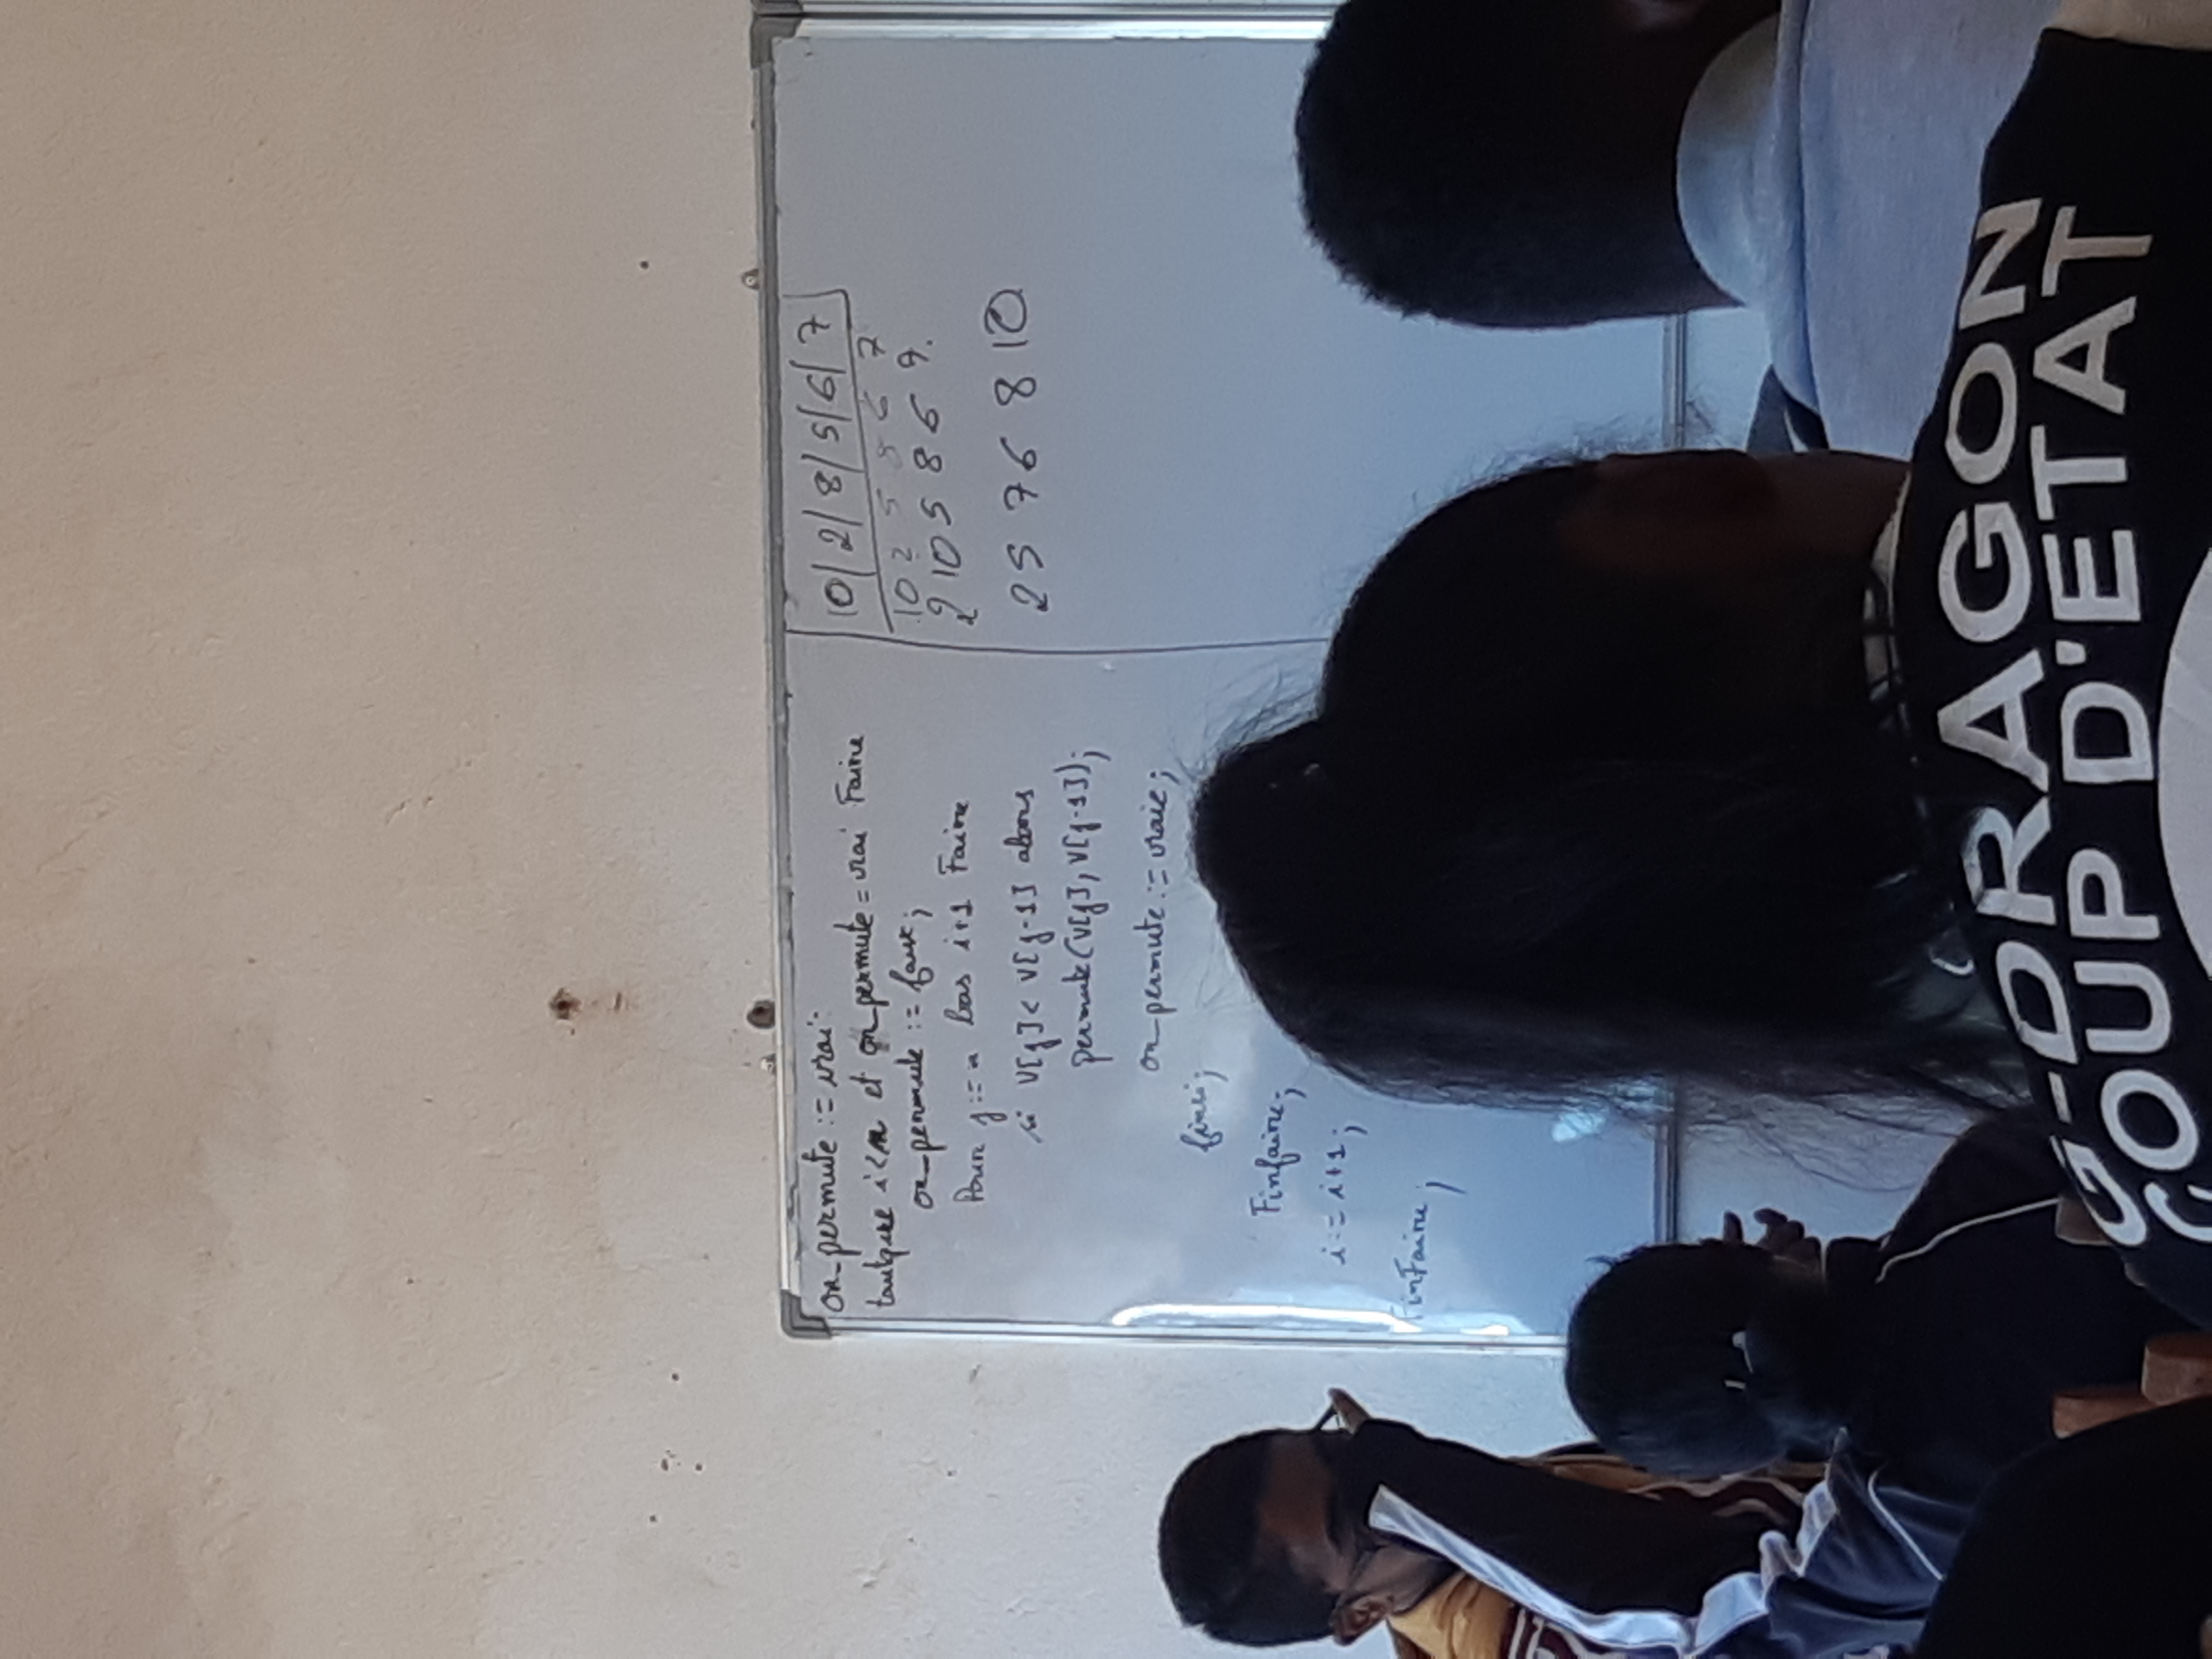 on_permute := vrai
tantque i<n et on_permute = vrai Faire
on_permute := faux;
Pour j := n bas i+1 Faire
si V[j] < V[j-1] alors
permute(V[j], V[j-1]);
on_permute := vraie;
finsi;
Finfaire;
i := i+1;
FinFaire;
10 | 2 | 8 | 5 | 6 | 7
10 2 5 8 6 7
2 10 5 8 6 7.
2 5 7 6 8 10
G-DRAGON
COUP D'ETAT